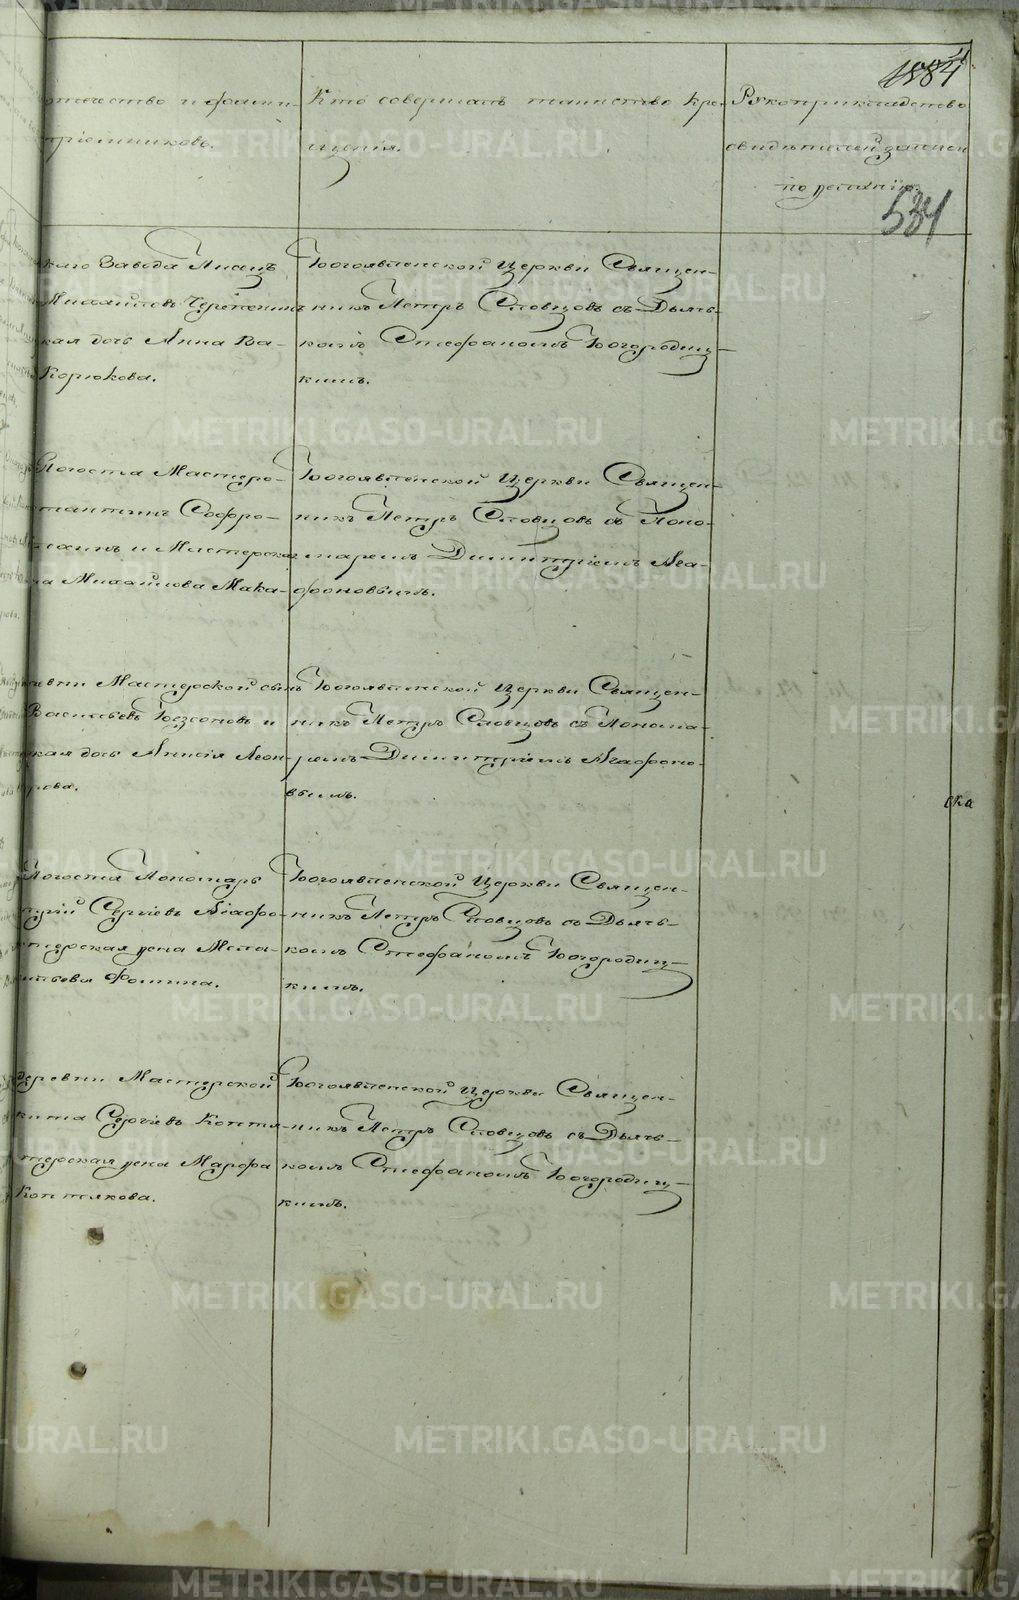 отчество и фамил-
пріемниковъ.
Кто совершалъ таинство кре-
щенія.
Рукоприкладство
свидѣтелей записи
по желанію.
534
каго Завода Писецъ
Михайловъ Черепанин
кая дочь Анна Ва-
Корюкова.
Богоявленской Церкви Священ-
никъ Петръ Словцовъ съ Дьяч-
комъ Стефаномъ Богородиц-
кимъ.
Погоста Мастеро-
стантинъ Софро-
и Мастерская
на Михайлова Мака-
Богоявленской Церкви Священ-
никъ Петръ Словцовъ съ Поно-
маремъ Димитріемъ Ага-
фоновымъ.
ревни Мастерской сынъ
Васильевъ Безсоновъ и
кая дочь Анисія Леон-
рова.
Богоявленской Церкви Священ-
никъ Петръ Словцовъ съ Понома-
ремъ Димитріемъ Агафоно-
вымъ.
ска
Погоста Пономарь
трій Сергіевъ Агафо-
терская жена Мела-
ильева Фомина.
Богоявленской Церкви Священ-
никъ Петръ Словцовъ съ Дьяч-
комъ Стефаномъ Богородиц-
кимъ.
деревни Мастерской
кита Сергіевъ Коптя-
терская жена Марфа
Коптякова.
Богоявленской Церкви Священ-
никъ Петръ Словцовъ съ Дьяч-
комъ Стефаномъ Богородиц-
кимъ.
METRIKI.GASO-URAL.RU